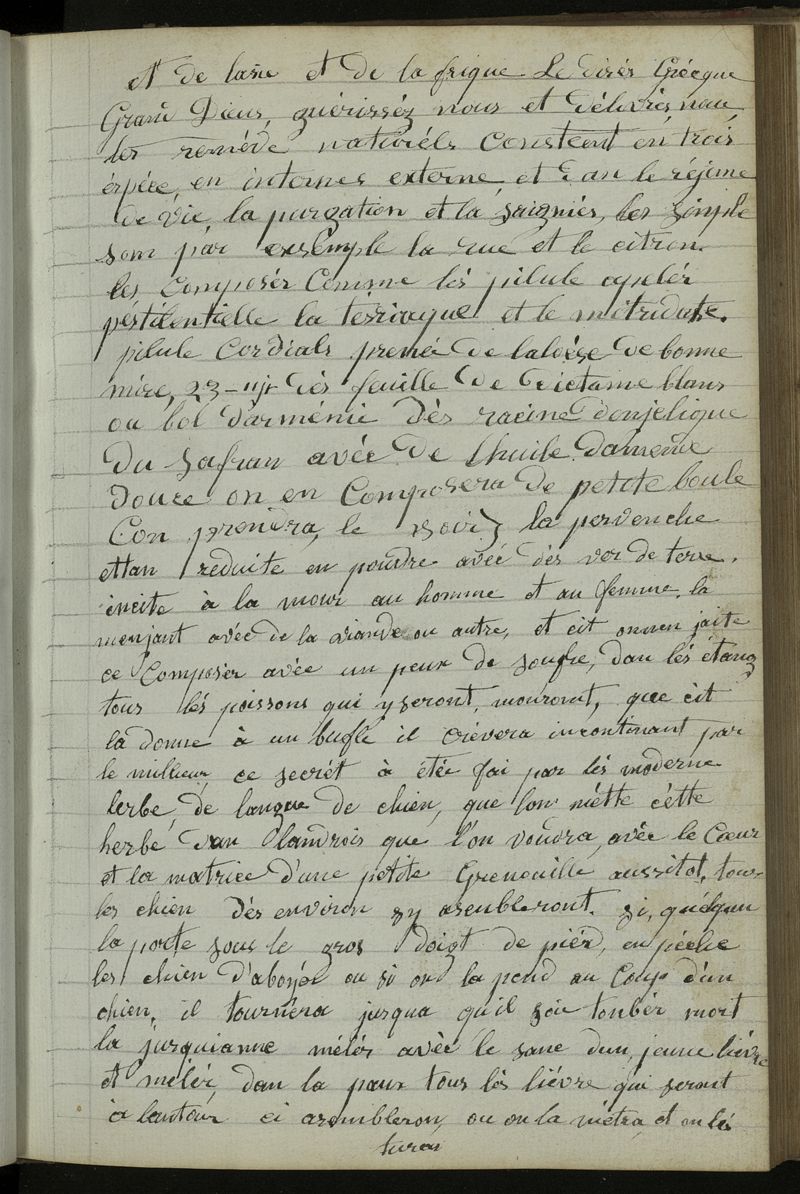 et de lasie et de la frique Le dirés Grécque
Grand Dieus, guérisséz nous et délivrés nous
les remède naturéls consteent en trois
éspéce, en internes externe, et dan le réjime
de vie, la purgation et la saignieé, les simple
som pàr exsemple la rue et le citron.
les composér comme lés pilule apelér
péstilentielle la tériaque et le mitridate.
pilule cordials prené de laloèse de bonne
mire, 23 dés feuille de dictame blans
ou bol d'arménie dès racine d'onjélique
du safran avéc de l'huile d'amende
douce on en composera de petite boule
Con prendra, le soir la pervenche
ettan réduite en poudre avéc dés ver de terre.
incite à la mour au homme et au femme, la
menjant avéc de la viande ou autre, et cit onnen jaite
ce composér avéc un peux de soufre, dan lés étang
tous lés poissons qui y seront, mouront, que cit
la donne à un bufle il crévera incontinant par
le millieux ce secrét à étée fai par lés moderne
lerbe, de langue de chien, que l'on métte cétte
herbe dan landrois que l'on voudra, avéc le Cœur
et la matrice d'une petite Grenouille aussitot, tous
les chien dés environ sy asenbleront. si, quélqun
la porte sous le gros doigt de piér, en péche
les chien d'aboyér ou si on la pend au Coup d'un
chien, il tournéra jusqua qu'il soie tonbér mort
la jusquianne mélér avéc le sanc d'un, jeune liévre
et mélér, dan la paux tous lés liévre qui seront
à lentour ci asembleron, ou on la métra, et on lés
turai